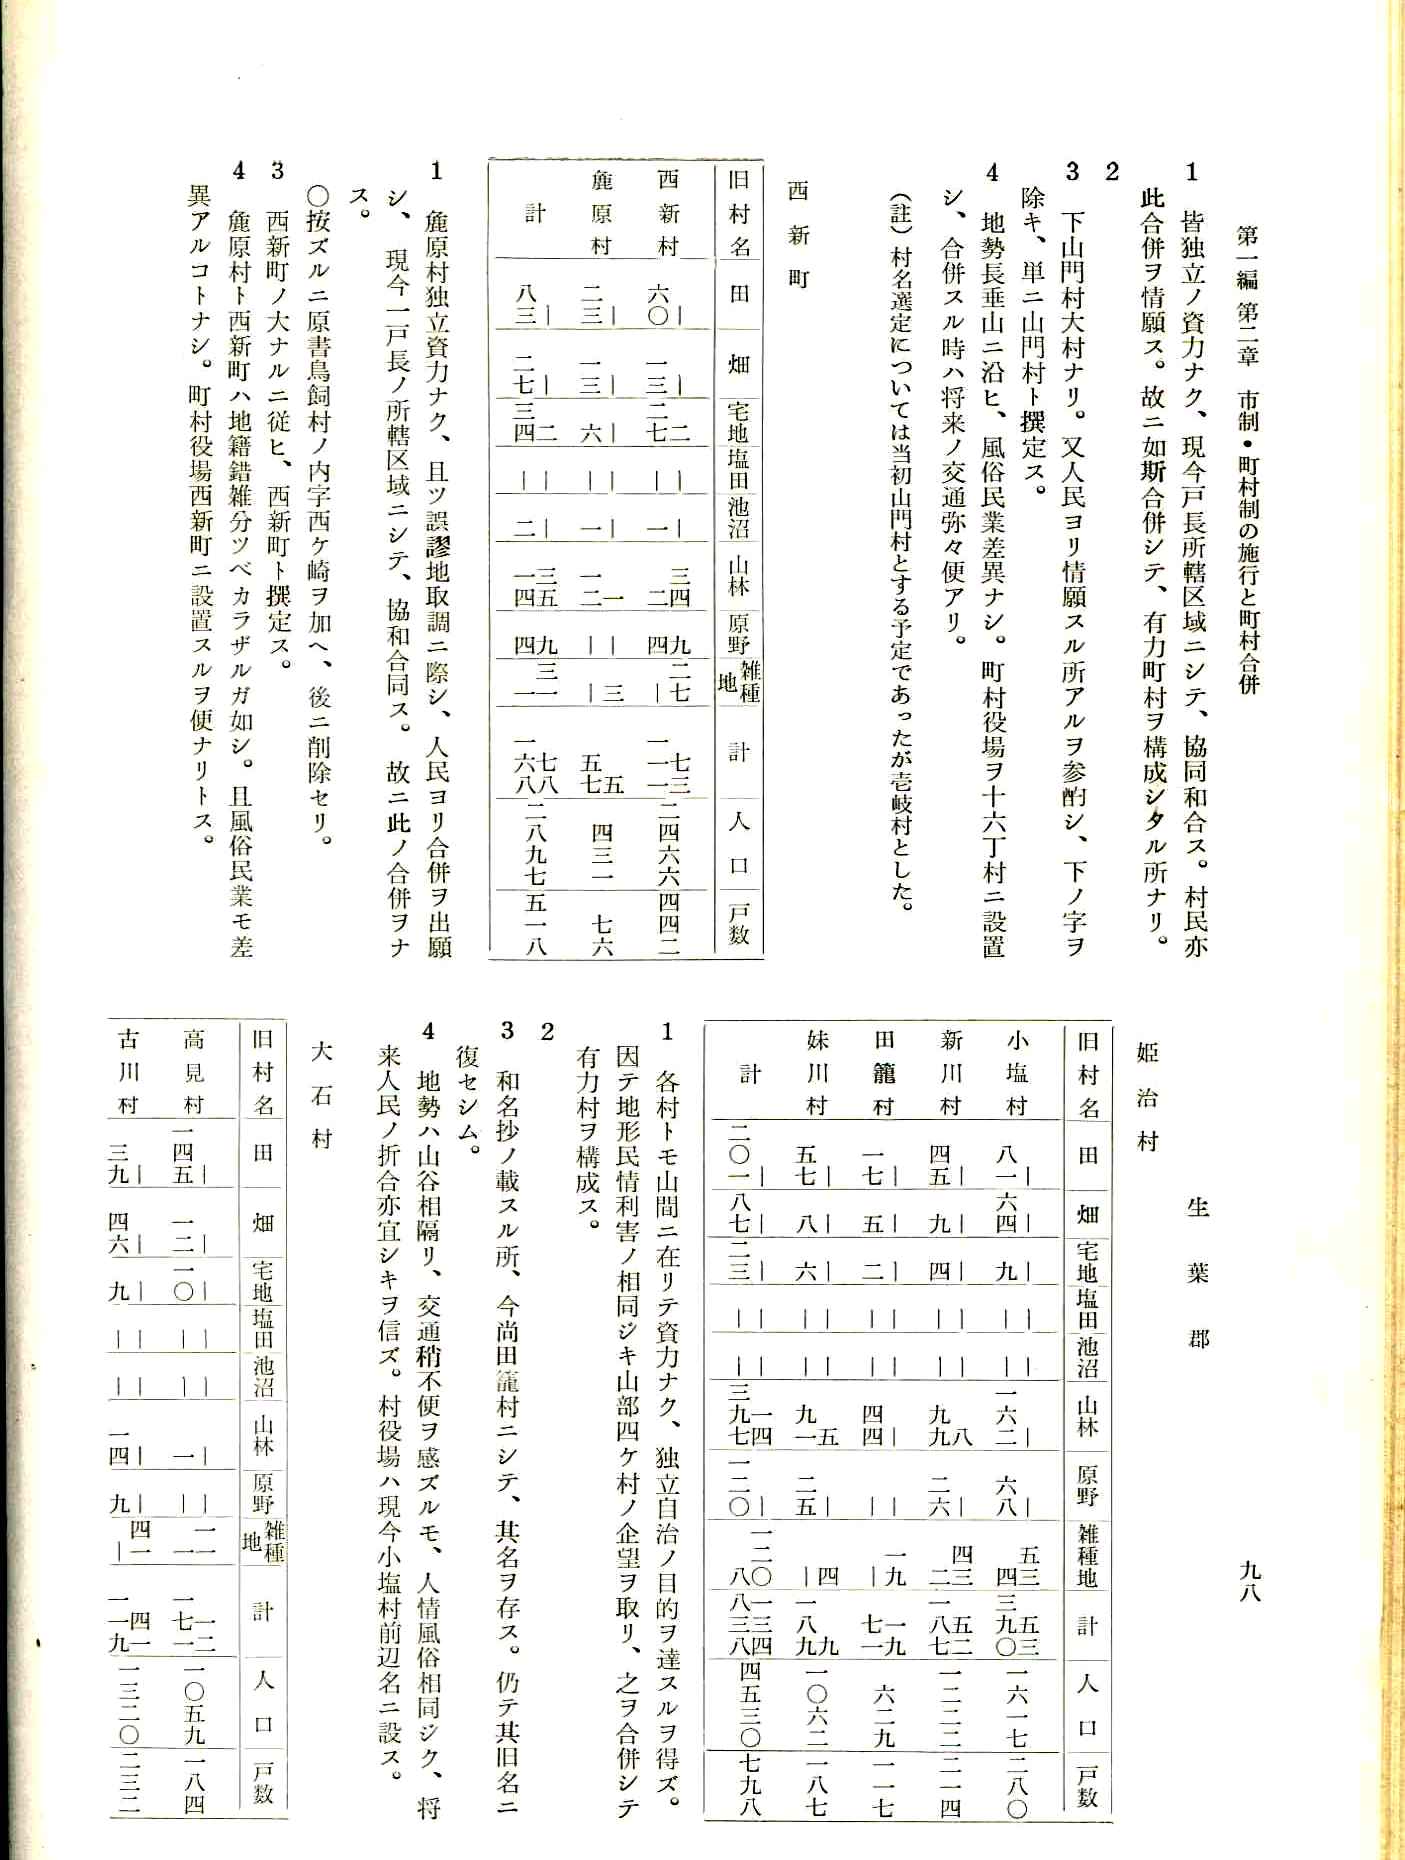 第一編 第二章 市制・町村制の施行と町村合併
1 皆独立ノ資力ナク、現今戸長所轄区域ニシテ、協同和合ス。村民亦
此合併ヲ情願ス。故ニ如斯合併シテ、有力町村ヲ構成シタル所ナリ。
2
3 下山門村大村ナリ。又人民ヨリ情願スル所アルヲ参酌シ、下ノ字ヲ
除キ、単ニ山門村ト撰定ス。
4 地勢長垂山ニ沿ヒ、風俗民業差異ナシ。町村役場ヲ十六丁村ニ設置
シ、合併スル時ハ将来ノ交通弥々便アリ。
(註)村名選定については当初山門村とする予定であったが壱岐村とした。
西新町
旧村名 田 畑 宅地 塩田 池沼 山林 原野 雑種地 計 人口 戸数
西新村 | 六〇 | 一三 二 二七 | | | 一 三四 二 九 四 二七 | 七三 一一一 二四六六 四四二
麁原村 | 二三 | 一三 | 六 | | | 一 一 一二 | | 三 | 五 五七 四三一 七六
計 | 八三 | 二七 二 三四 | | | 二 三五 一四 九 四 三一 一 七八 一六八 二八九七 五一八
1 麁原村独立資力ナク、且ツ誤謬地取調ニ際シ、人民ヨリ合併ヲ出願
シ、現今一戸長ノ所轄区域ニシテ、協和合同ス。故ニ此ノ合併ヲナ
ス。
〇按ズルニ原書鳥飼村ノ内字西ケ崎ヲ加ヘ、後ニ削除セリ。
3 西新町ノ大ナルニ従ヒ、西新町ト撰定ス。
4 麁原村ト西新町ハ地籍錯雑分ツベカラザルガ如シ。且風俗民業モ差
異アルコトナシ。町村役場西新町ニ設置スルヲ便ナリトス。
九八
生葉郡
姫治村
旧村名 田 畑 宅地 塩田 池沼 山林 原野 雑種地 計 人口 戸数
小塩村 | 八一 | 六四 | 九 | | | | | 一六二 | 六八 五三 四 五三 三九〇 一六一七 二八〇
新川村 | 四五 | 九 | 四 | | | | 八 九九 | 二六 四三 二 五二 一八七 一二二二 二一四
田籠村 | 一七 | 五 | 二 | | | | | 四四 | | 一九 | 一九 七一 六二九 一一七
妹川村 | 五七 | 八 | 六 | | | | 五 九一 | 二五 四 | 九 一八九 一〇六二 一八七
計 | 二〇一 | 八七 | 二三 | | | | 一四 三九七 | 一二〇 一二〇 八 一三四 八三八 四五三〇 七九八
1 各村トモ山間ニ在リテ資力ナク、独立自治ノ目的ヲ達スルヲ得ズ。
因テ地形民情利害ノ相同ジキ山部四ケ村ノ企望ヲ取リ、之ヲ合併シテ
有力村ヲ構成ス。
2
3 和名抄ノ載スル所、今尚田籠村ニシテ、其名ヲ存ス。仍テ其旧名ニ
復セシム。
4 地勢ハ山谷相隔リ、交通稍不便ヲ感ズルモ、人情風俗相同ジク、将
来人民ノ折合亦宜シキヲ信ズ。村役場ハ現今小塩村前辺名ニ設ス。
大石村
旧村名 田 畑 宅地 塩田 池沼 山林 原野 雑種地 計 人口 戸数
高見村 | 一四五 | 一二 | 一〇 | | | | | 一 | | 一一 一 一二 一七一 一〇五九 一八四
古川村 | 三九 | 四六 | 九 | | | | | 一四 | 九 四一 | 四一 一一九 一三二〇 二三二